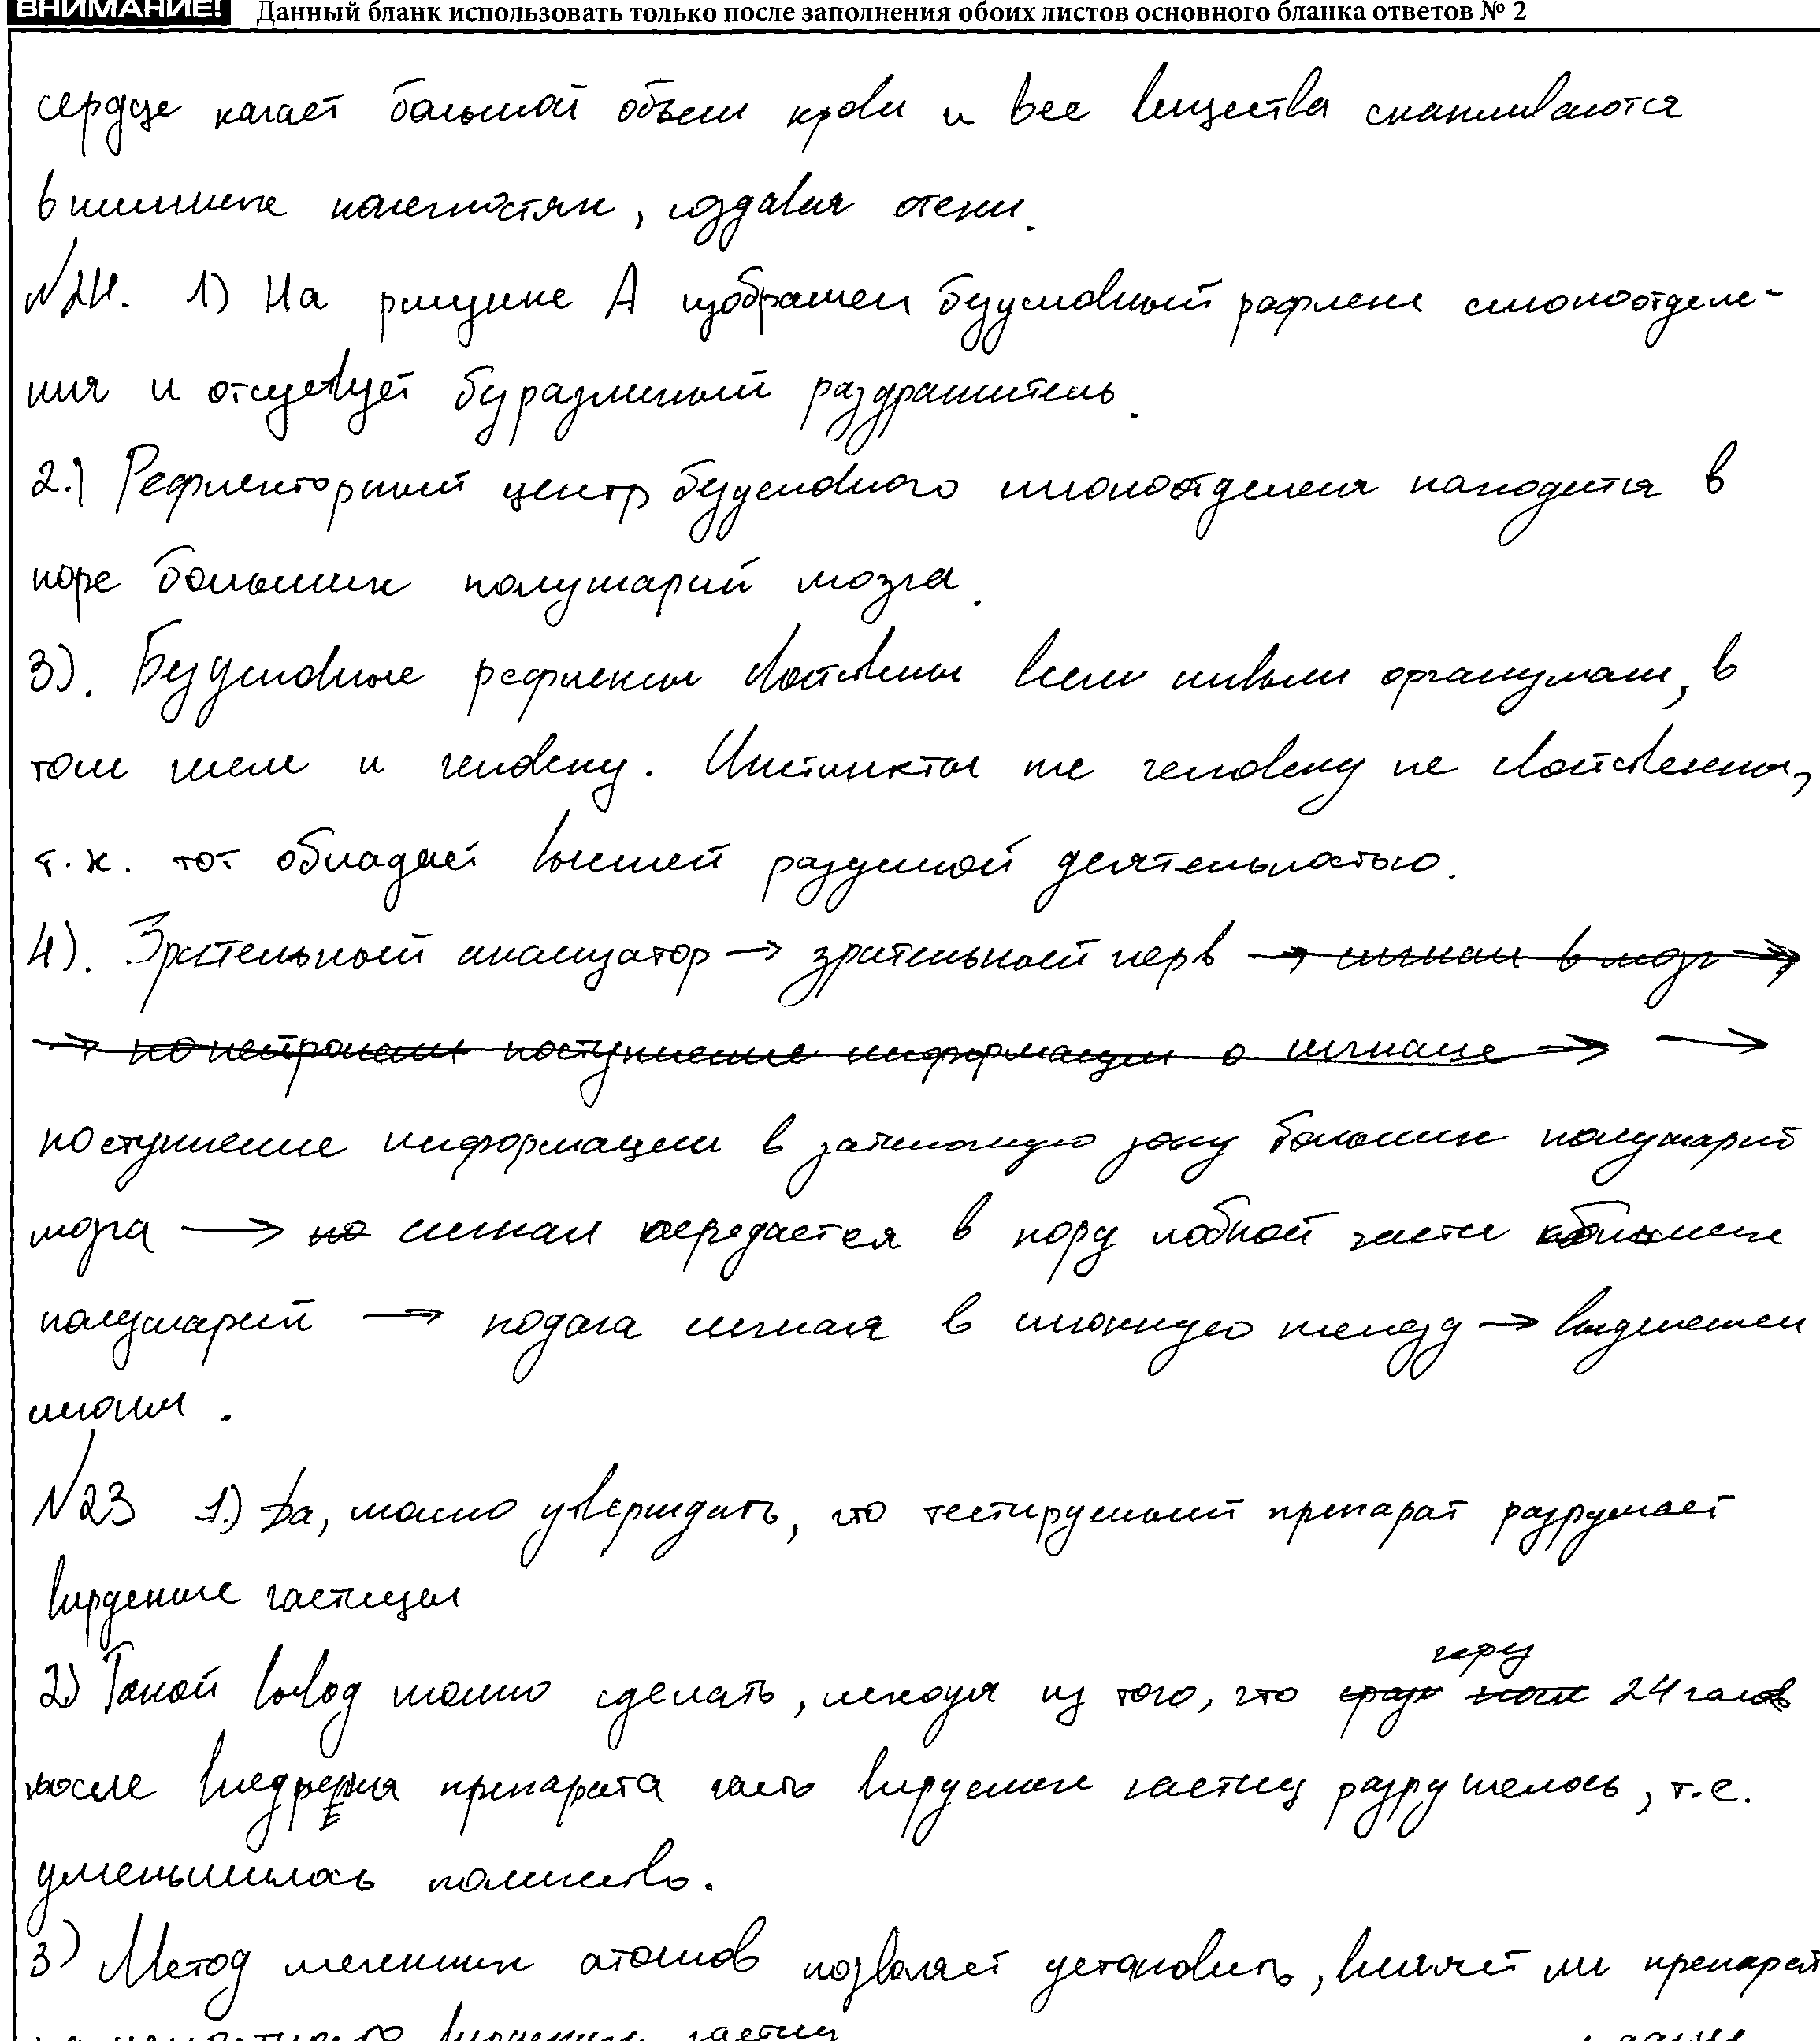 ВНИМАНИЕ! Данный бланк использовать только после заполнения обоих листов основного бланка ответов № 2
сердце качает большой объем крови и все вещества скапливаются
в нижних конечностях, создавая отеки.
№24. 1) На рисунке А изображен безусловный рефлекс слюноотделе-
ния и отсутвует безразличный раздражитель.
2.) Рефлекторный центр безусловного слюноотделеня находится в
коре больших полушарий мозга.
3). Безусловные рефлексы свойствены всем живым организмам, в
том числе и человеку. Инстинкты же человеку не свойственны,
т.к. тот обладает высшей разумной деятельностью.
4). Зрительный анализатор → зрительный нерв → сигнал в мозг →
→ по нейронам поступление информации о сигнале → →
поступление информации в затылочную зону больших полушарий
мозга → по сигнал передается в кору лобной части больших
полушарий → подача сигнала в слюнную железу → выделении
слюны.
№23 1.) Да, можно утверждать, что тестируемый препарат разрушает
вирусные частицы
2) Такой вывод можно сделать, исходя из того, что через 24 часов
после внедрения препарата часть вирусных частиц разрушелось, т.е.
уменьшилось количество.
3) Метод меченных атомов позволяет установить, влияет ли препарат
вирусных частиц